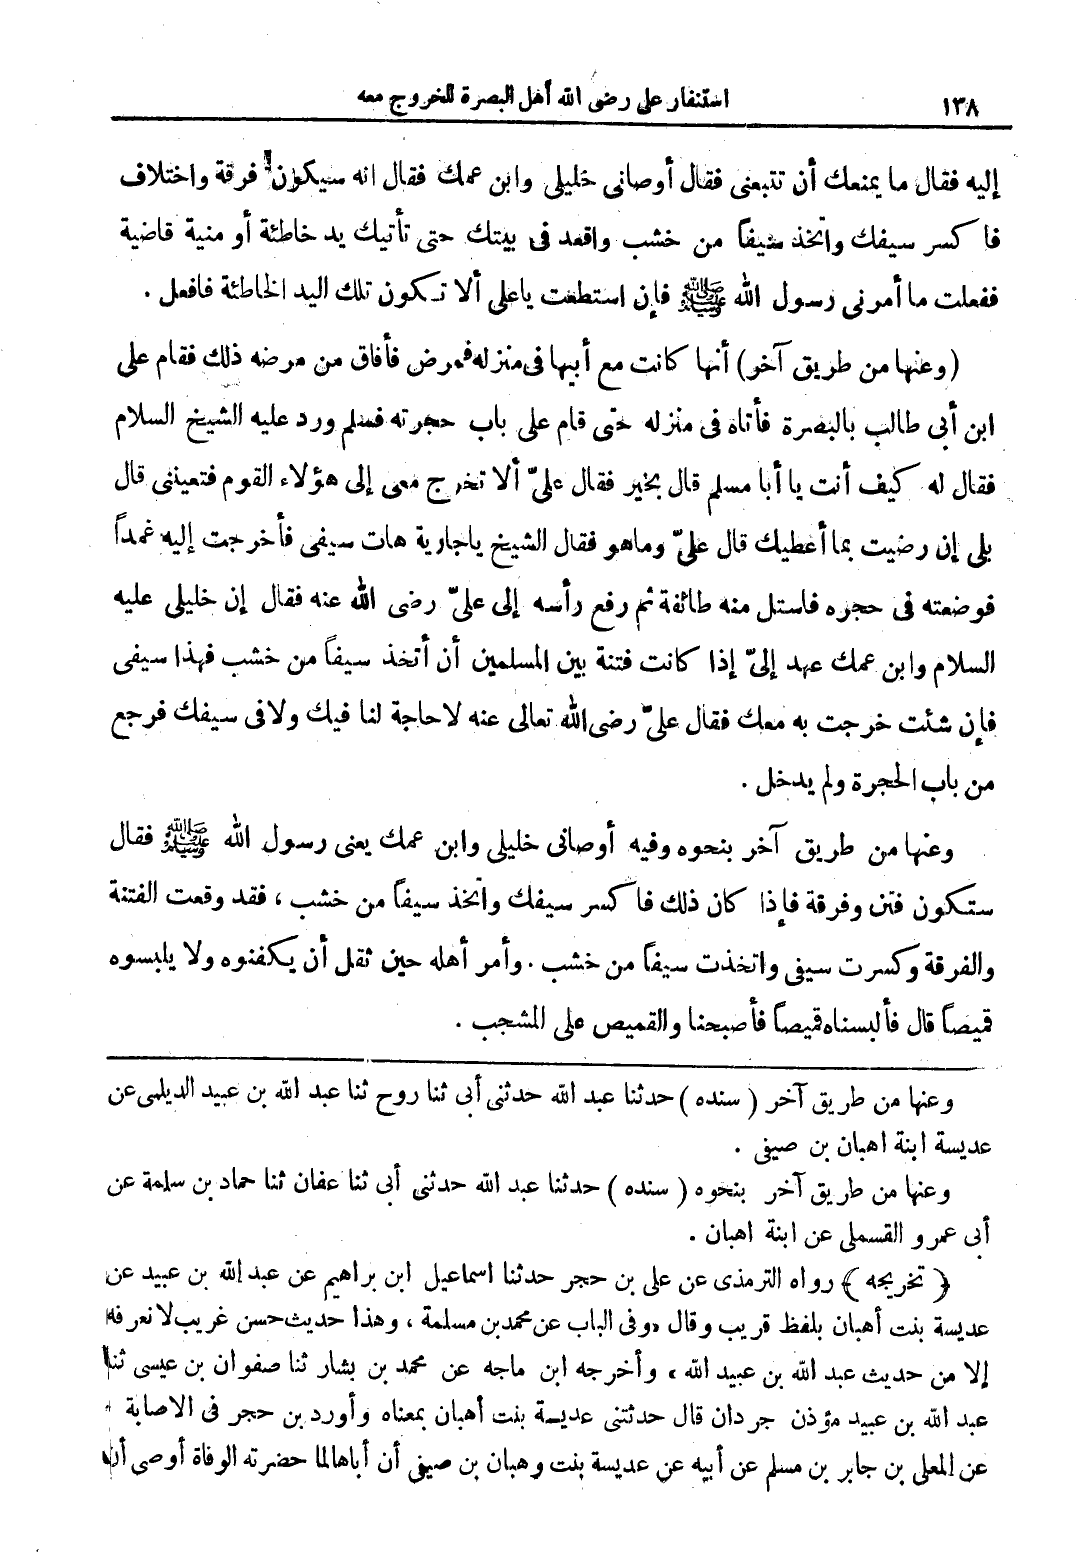 ١٣٨ استنفار على رضى الله أهل البصرة للخروج معه
إليه فقال ما يمنعك أن تتبعنى فقال أوصانى خليلى وابن عمك فقال انه سيكون فرقة واختلاف
فاكسر سيفك واتخذ سيفاً من خشب واقعد فى بيتك حتى تأتيك يد خاطئة أو منية قاضية
ففعلت ما أمرنى رسول الله ﷺ فإن استطعت ياعلى ألا تكون تلك اليد الخاطئة فافعل .
(وعنها من طريق آخر) أنها كانت مع أبيها فى منزله فمرض فأفاق من مرضه ذلك فقام على
ابن أبى طالب بالبصرة فأتاه فى منزله حتى قام على باب حجرته فسلم ورد عليه الشيخ السلام
فقال له كيف أنت يا أبا مسلم قال بخير فقال علىّ ألا تخرج معى إلى هؤلاء القوم فتعيننى قال
بلى إن رضيت بما أعطيك قال علىّ وماهو فقال الشيخ ياجارية هات سيفى فأخرجت إليه غمداً
فوضعته فى حجره فاستل منه طائفة ثم رفع رأسه إلى علىّ رضى الله عنه فقال إن خليلى عليه
السلام وابن عمك عهد إلىّ إذا كانت فتنة بين المسلمين أن أتخذ سيفاً من خشب فهذا سيفى
فإن شئت خرجت به معك فقال علىّ رضى الله تعالى عنه لاحاجة لنا فيك ولافى سيفك فرجع
من باب الحجرة ولم يدخل .
وعنها من طريق آخر بنحوه وفيه أوصانى خليلى وابن عمك يعنى رسول الله ﷺ فقال
ستكون فتن وفرقة فإذا كان ذلك فاكسر سيفك واتخذ سيفاً من خشب ، فقد وقعت الفتنة
والفرقة وكسرت سيفى واتخذت سيفاً من خشب . وأمر أهله حين ثقل أن يكفنوه ولا يلبسوه
قميصاً قال فألبسناه قميصاً فأصبحنا والقميص على المشجب .
وعنها من طريق آخر ( سنده ) حدثنا عبد الله حدثنى أبى ثنا روح ثنا عبد الله بن عبيد الديلمى عن
عديسة ابنة اهبان بن صيفى .
وعنها من طريق آخر بنحوه ( سنده ) حدثنا عبد الله حدثنى أبى ثنا عفان ثنا حماد بن سلمة عن
أبى عمرو القسملى عن ابنة اهبان .
﴿ تخريجه ﴾ رواه الترمذى عن على بن حجر حدثنا اسماعيل ابن براهيم عن عبد الله بن عبيد عن
عديسة بنت أهبان بلفظ قريب وقال «وفى الباب عن محمد بن مسلمة ، وهذا حديث حسن غريب لا نعرفه
إلا من حديث عبد الله بن عبيد الله ، وأخرجه ابن ماجه عن محمد بن بشار ثنا صفوان بن عيسى ثنا
عبد الله بن عبيد مؤذن جردان قال حدثتنى عديسة بنت أهبان بمعناه وأورد بن حجر فى الاصابة
عن المعلى بن جابر بن مسلم عن أبيه عن عديسة بنت وهبان بن صيفى أن أباها لما حضرته الوفاة أوصى أن